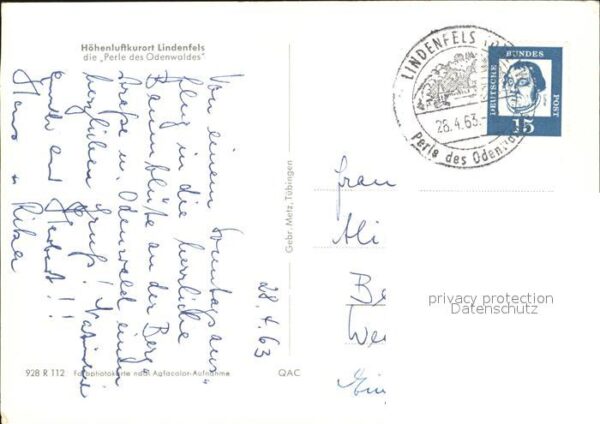 Höhenluftkurort Lindenfels
die „Perle des Odenwaldes"
28.4.63
Von einem Sonntagsaus-
flug in die herrliche
Baumblüte an der Berg-
straße u. Odenwald einen
herzlichen Gruß!
und Herbert!!
Hans u.
Gebr. Metz, Tübingen
928 R 112 Farbphotokarte nach Agfacolor-Aufnahme QAC
LINDENFELS
28.4.63.
Perle des Odenwaldes
DEUTSCHE BUNDESPOST
15
Frau
privacy protection
Datenschutz